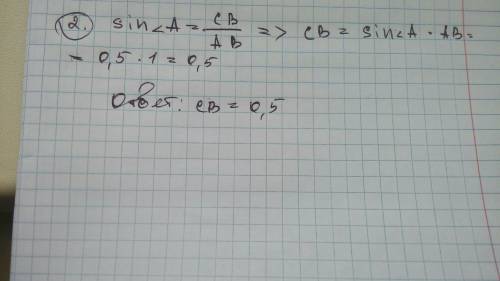 2. sin∠A = CB/AB => CB = sin∠A · AB =
= 0,5 · 1 = 0,5
Ответ: CB = 0,5